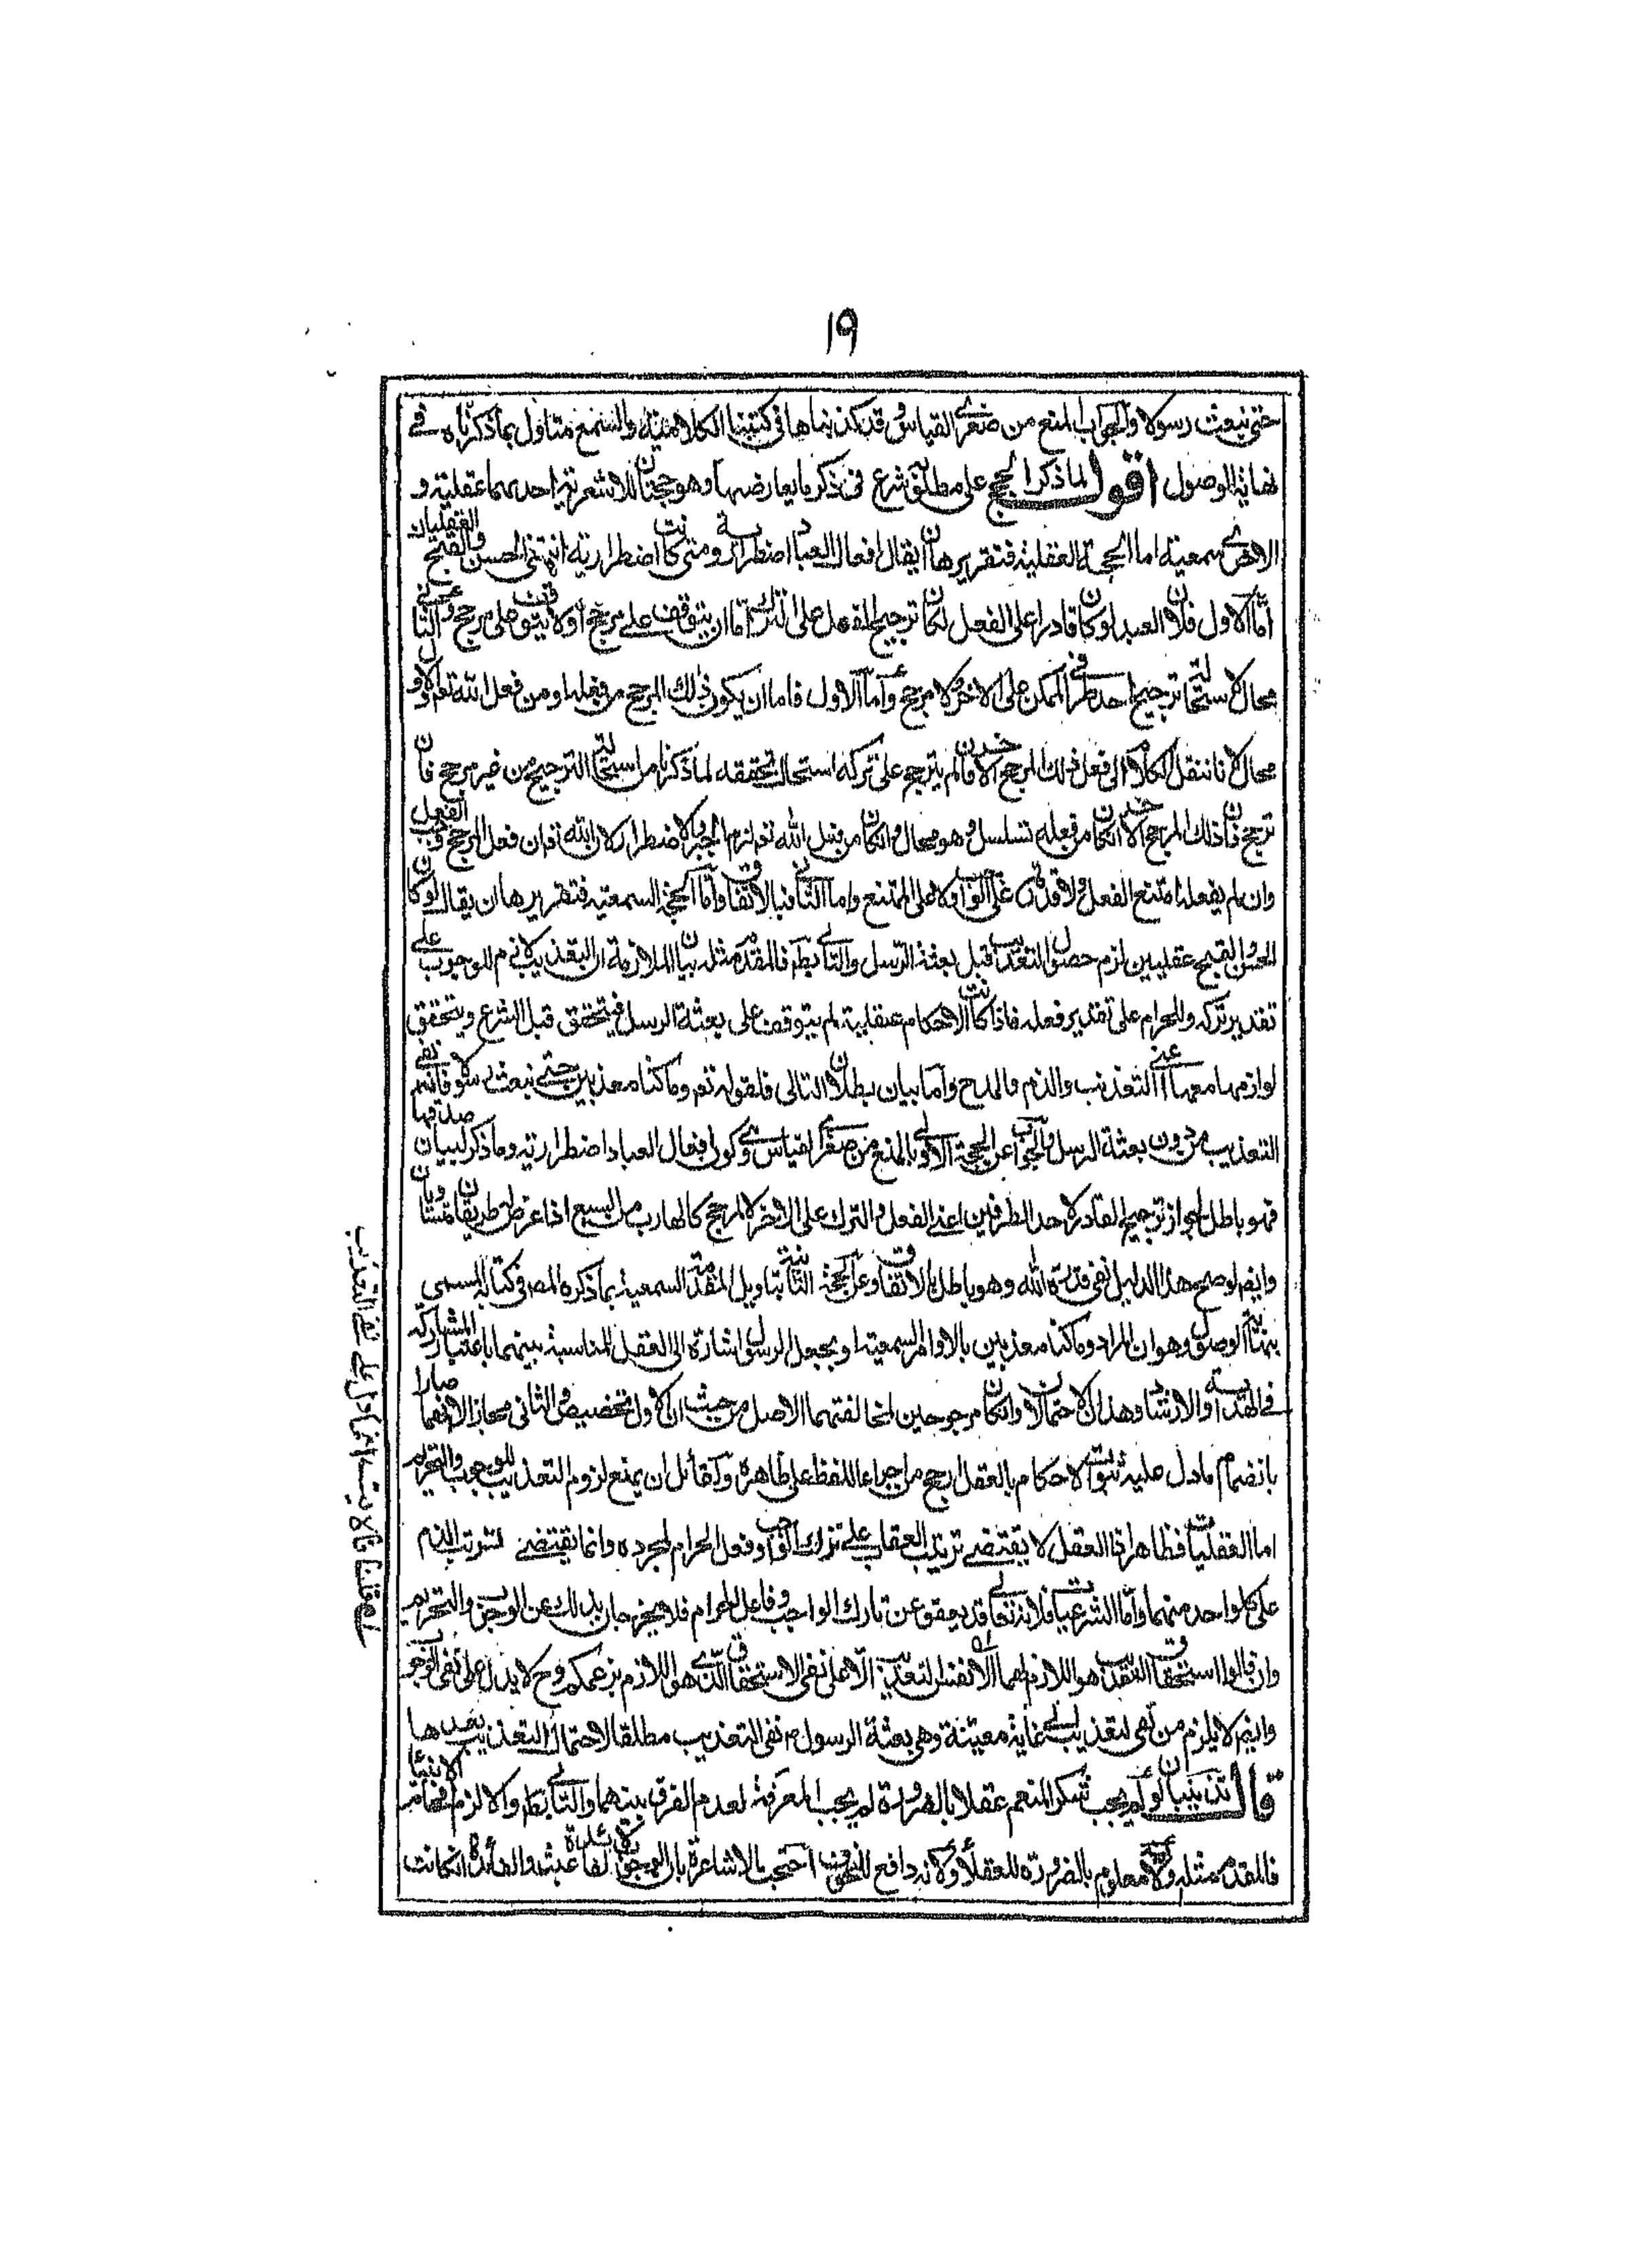 ١٩
حتى نبعث رسولا والجواب المنع من صغرى القياس وقد كذبناها فى كتبنا الكلامية والسمع متاول بما ذكرناه فے
نهاية الوصول اقول لما ذكر الحجج على مطلوبه شرع فى ذكر ما يعارضها وهو حجتان للاشعرية احدىهما عقلية و
الاخرى سمعية اما الحجة العقلية فتقريرها ان يقال افعال العباد اضطرارية ومتى كانت اضطرارية انتفى الحسن والقبح العقليان
اما الاول فلان العبد لو كان قادرا على الفعل لكان ترجيح الفعل على الترك اما ان يتوقف على مرجح او لا يتوقف على مرجح والثانى
محال لاستحالة ترجيح احد طرفى الممكن على الاخر لا لمرجح واما الاول فاما ان يكون ذلك المرجح من فعله او من فعل الله تعه والاول
محال لانا ننقل الكلام الى فعل ذلك المرجح الاخر فان لم يترجح على تركه استحال تحققه لما ذكرنا من استحالة الترجيح من غير مرجح فان
ترجح فان ذلك المرجح الاخر ان كان من فعله تسلسل وهو محال وان كان من قبل الله تعه لزم الجبر والاضطرار لان الله تعه ان فعل المرجح وجب الفعل
وان لم يفعله امتنع الفعل ولا قدرة على الواجب ولا على الممتنع واما الثانى فبالاتفاق واما الحجة السمعية فتقريرها ان يقال لو كان
الحسن والقبح عقليين لزم حصول التعذيب قبل بعثة الرسل والتالى بط فالمقدم مثله بيان الملازمة ان التعذيب لازم للوجوب على
تقدير تركه والحرام على تقدير فعله فاذا كانت الاحكام عقلية لم يتوقف على بعثة الرسل فيتحقق قبل الشرع ويتحقق
لوازمها معها اعنے التعذيب والذم والمدح واما بيان بطلان التالى فلقوله تعه وما كنا معذبين حتى نبعث رسولا فانه نفى
التعذيب من دون بعثة الرسل والجواب عن الحجة الاولى بالمنع من صدقها صغرى القياس وهى كون افعال العباد اضطرارية وما ذكر لبيان
فهو باطل لجواز ترجيح القادر لاحد الطرفين اعنى الفعل والترك على الاخر لا لمرجح كالهارب من السبع اذا عرض له طريقان متساويان
وايضا لو صح هذا الدليل لنفى قدرة الله وهو باطل بالاتفاق وعن الحجة الثانية بتاويل المقدمة السمعية بما ذكره المص فى كتابه المسمى
بنهاية الوصول وهو ان المراد وما كنا معذبين بالاوامر السمعية او بجعل الرسول اشارة الى العقل للمناسبة بينهما باعتبار المشاركة
فى الهداية والارشاد وهذان الاحتمالان وان كان مرجوحين لمخالفتهما الاصل من حيث ان الاول تخصيص والثانى مجاز الا انهما صارا
بانضمام ما دل عليه ثبوت الاحكام بالعقل ارجح من اجراء اللفظ على ظاهره ولقائل ان يمنع لزوم التعذيب للوجوب والتحريم
اما العقليات فظاهر اذ العقل لا يقتضے ترتب العقاب على ترك الواجب وفعل الحرام لمجرده وانما يقتضے ترتب الذم
على كل واحد منهما واما الشرعيات فلانه تعالى قد يعفو عن تارك الواجب وفاعل الحرام فلا يخرجان بذلك عن الوجوب والتحريم
وان قالوا استحقاق التعذيب هو اللازم لهما لا نفس التعذيب الا على نفى الاستحقاق الذى هو اللازم بزعمكم وح لا يدل على نفى الوجوب
وايضا لا يلزم من نفى التعذيب الى غاية معينة وهى بعثة الرسول نفى التعذيب مطلقا لاحتمال التعذيب بعدها
قال تذنيبان لو لم يجب شكر المنعم عقلا بالضرورة لم يجب المعرفة لعدم الفرق بينهما والتالى بط والا لزم افحام الانبياء
فالمقدم مثله ولانه معلوم بالضرورة للعقلاء ولانه دافع للخوف احتجت الاشاعرة بان الوجوب لا لفائدة عبث والفائدة ان كانت